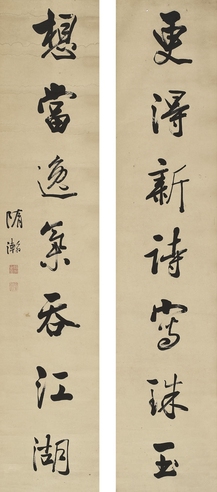 更得新詩寫珠玉
想當逸氣吞江湖
隋瀚